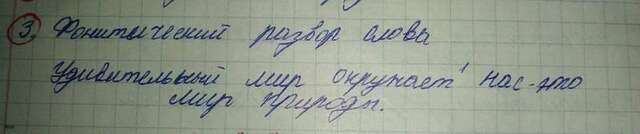 3. Фонитический развор слова
Удивительный мир окружает¹ нас-это
мир природы.